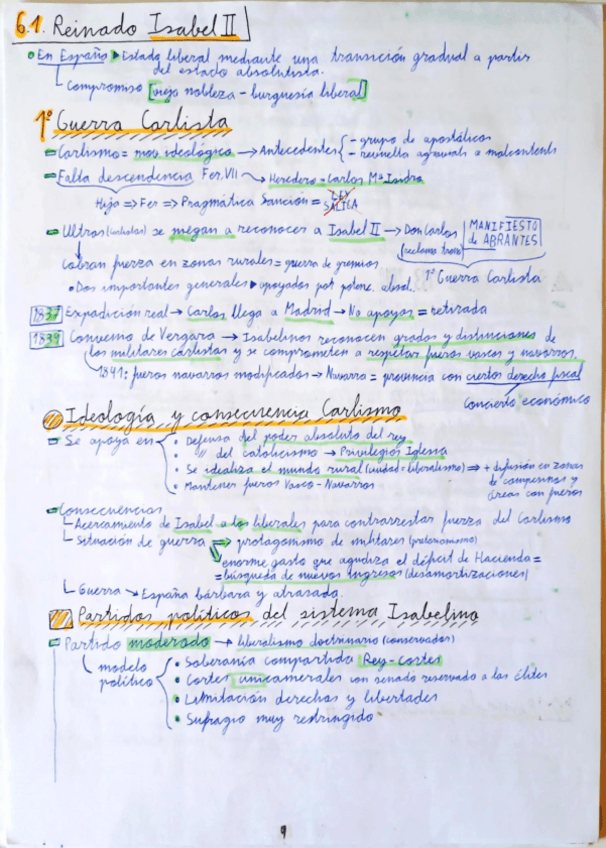 6.1. Reinado Isabel II
En España ▸ Estado liberal mediante una transición gradual a partir
del estado absolutista.
Compromiso [vieja nobleza - burguesía liberal]
1ª Guerra Carlista
Carlismo = mov. ideológico → Antecedentes { - grupo de apostólicos
- revuelta agraviats o malcontents
Falta descendencia Fer. VII → Heredero = Carlos Mª Isidro
Hija ⇒ Fer ⇒ Pragmática Sanción = LEY
SÁLICA
Ultras (carlistas) se niegan a reconocer a Isabel II → Don Carlos MANIFIESTO
(reclama trono) de ABRANTES
Cobran fuerza en zonas rurales = guerra de gremios
1ª Guerra Carlista
• Dos importantes generales ▸ apoyados por potenc. absol.
1837 Expedición real → Carlos llega a Madrid → No apoyos = retirada
1839 Convenio de Vergara → Isabelinos reconocen grados y distinciones de
los militares carlistas y se comprometen a respetar fueros vascos y navarros.
1841: fueros navarros modificados → Navarra = provincia con ciertos derecho fiscal
concierto económico
Ideología y consecuencia Carlismo
Se apoya en • Defensa del poder absoluto del rey
• " del catolicismo → Privilegios Iglesia
• Se idealiza el mundo rural (ciudad = liberalismo) ⇒ + difusión en zonas
de campesinos y
• Mantener fueros Vasco-Navarros
áreas con fueros
Consecuencias
Acercamiento de Isabel a los liberales para contrarrestar fuerza del Carlismo
Situación de guerra → protagonismo de militares (pretorianismo)
enorme gasto que agudiza el déficit de Hacienda =
= búsqueda de nuevos ingresos (desamortizaciones)
Guerra → España bárbara y atrasada.
Partidos políticos del sistema Isabelino
Partido moderado → liberalismo doctrinario (conservador)
modelo
político
• Soberanía compartida Rey-Cortes
• Cortes unicamerales con senado reservado a las élites
• Limitación derechos y libertades
• Sufragio muy restringido